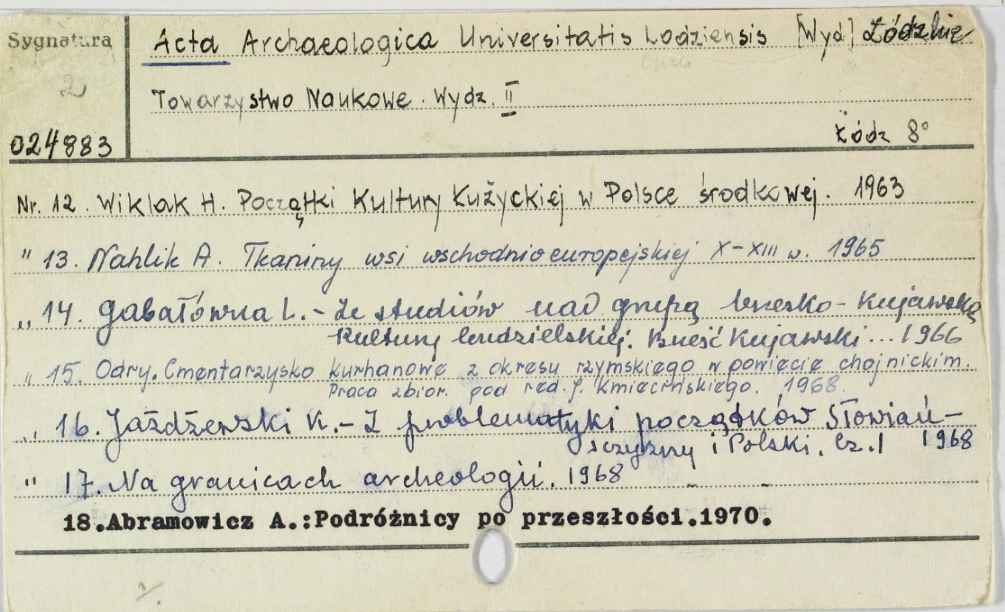 Sygnatura
2
024883
Acta Archaeologica Universitatis Lodziensis [Wyd] Łódzkie
Towarzystwo Naukowe. Wydz. II
Łódz 8°
Nr. 12. Wiklak H. Początki Kultury Łużyckiej w Polsce środkowej. 1963
" 13. Nahlik A. Tkaniny wsi wschodnioeuropejskiej X-XIII w. 1965
„ 14. Gabałówna L.- Ze studiów nad grupą brzesko-kujawską
Kultury lendzielskiej. Brześć Kujawski... 1966
" 15. Odry. Cmentarzysko kurhanowe z okresu rzymskiego w powiecie chojnickim.
Praca zbior. pod red. J. Kmiecińskiego. 1968.
„ 16. Jażdżewski K.- Z problematyki początków Słowiań-
szczyzny i Polski. Cz. I 1968
" 17. Na granicach archeologii. 1968
18.Abramowicz A.:Podróżnicy po przeszłości.1970.